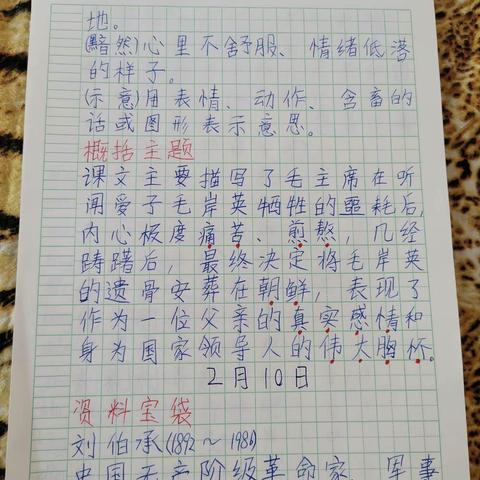 地。
(黯然)心里不舒服、情绪低落
的样子。
(示意)用表情、动作、含畜的
话或图形表示意思。
概括主题
课文主要描写了毛主席在听
闻爱子毛岸英牺牲的噩耗后,
内心极度痛苦、煎熬,几经
踌躇后,最终决定将毛岸英
的遗骨安葬在朝鲜,表现了
作为一位父亲的真实感情和
身为国家领导人的伟大胸怀。
2月10日
资料宝袋
刘伯承(1892~1986)
中国无产阶级革命家、军事